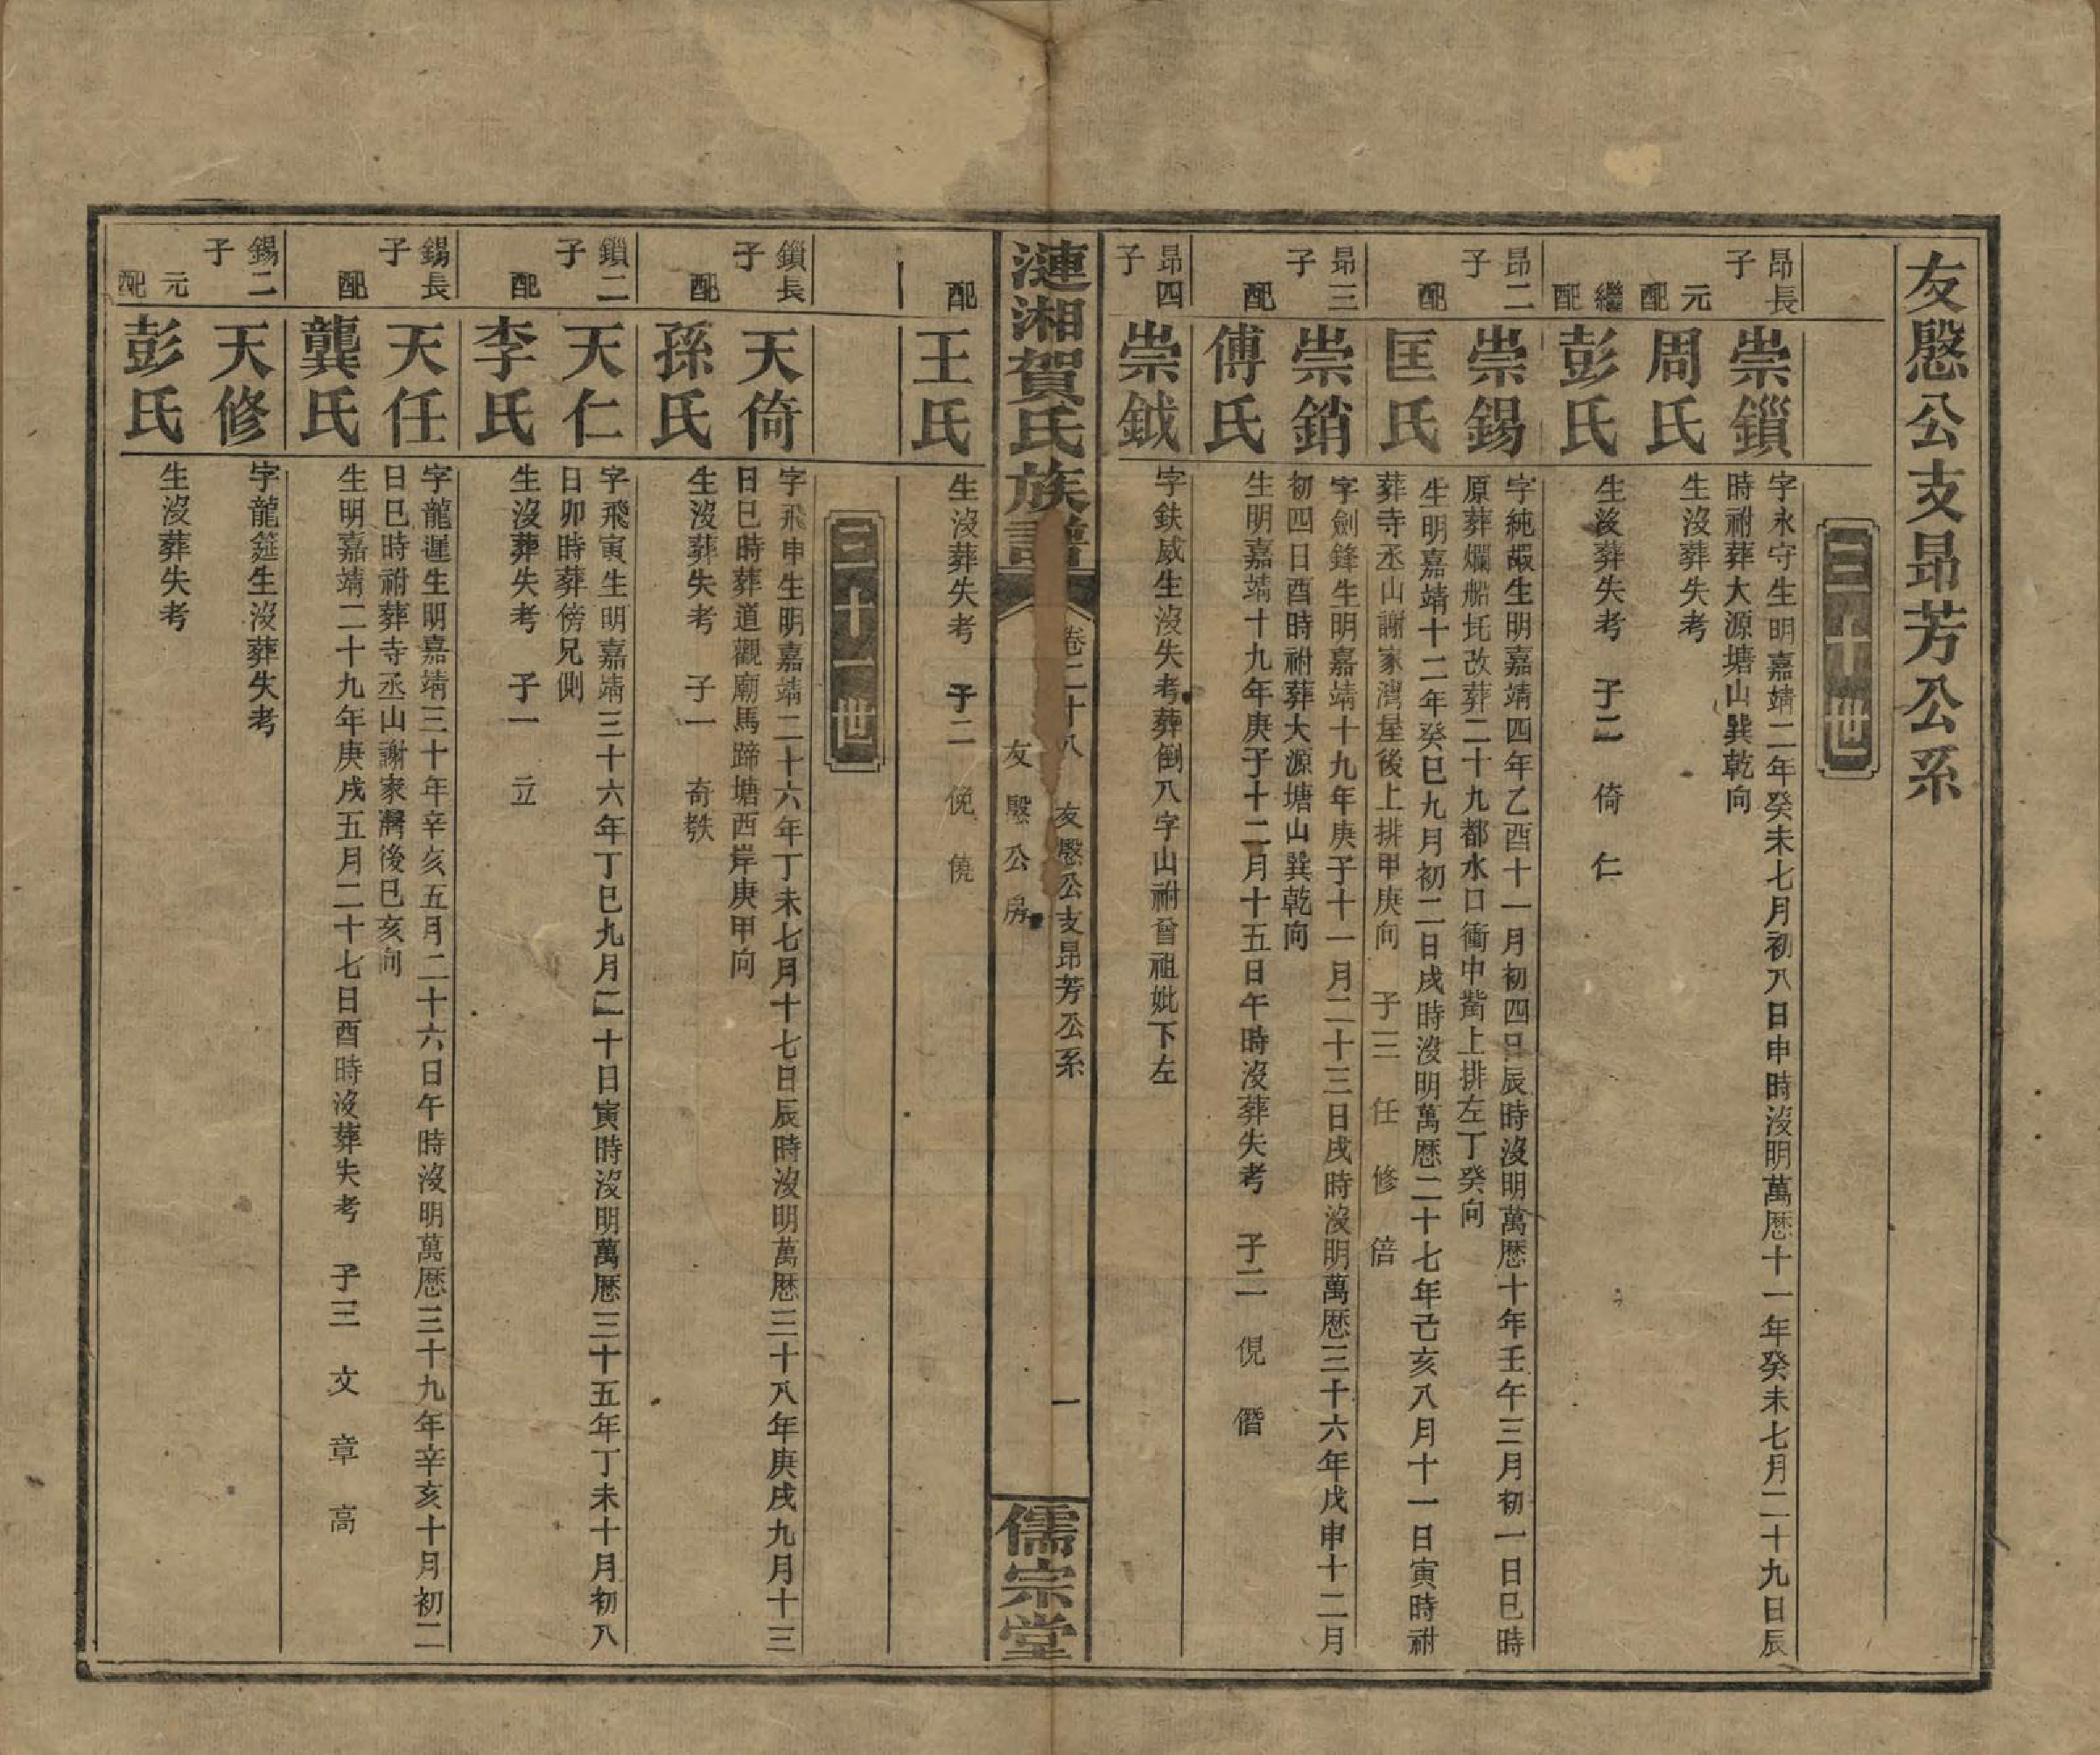 友慇公支昂芳公系
三十世
昂長子
崇鎖
字永守生明嘉靖二年癸未七月初八日申時沒明萬歷十一年癸未七月二十九日辰
時祔葬大源塘山巽乾向
元配
周氏
生沒葬失考
繼配
彭氏
生沒葬失考 子二 倚 仁
昂二子
崇錫
字純嘏生明嘉靖四年乙酉十一月初四日辰時沒明萬歷十年壬午三月初一日巳時
原葬爛船圫改葬二十九都水口衝中嵛上排左丁癸向
配
匡氏
生明嘉靖十二年癸巳九月初二日戌時沒明萬歷二十七年己亥八月十一日寅時祔
葬寺丞山謝家灣屋後上排甲庚向 子三 任 修 倍
昂三子
崇銷
字劍鋒生明嘉靖十九年庚子十一月二十三日戌時沒明萬歷三十六年戊申十二月
初四日酉時祔葬大源塘山巽乾向
配
傅氏
生明嘉靖十九年庚子十二月十五日午時沒葬失考 子二 俔 僭
昂四子
崇鉞
字鈇威生沒失考葬倒八字山祔曾祖妣下左
漣湘賀氏族譜
卷二十八 友慇公支昂芳公系
友慇公房
一
儒宗堂
配
王氏
生沒葬失考 子二 俛 僥
三十一世
鎖長子
天倚
字飛申生明嘉靖二十六年丁未七月十七日辰時沒明萬歷三十八年庚戌九月十三
日巳時葬道觀廟馬蹄塘西岸庚甲向
配
孫氏
生沒葬失考 子一 奇
鎖二子
天仁
字飛寅生明嘉靖三十六年丁巳九月二十日寅時沒明萬歷三十五年丁未十月初八
日卯時葬傍兄側
配
李氏
生沒葬失考 子一 立
錫長子
天任
字龍遲生明嘉靖三十年辛亥五月二十六日午時沒明萬歷三十九年辛亥十月初二
日巳時祔葬寺丞山謝家灣後巳亥向
配
龔氏
生明嘉靖二十九年庚戌五月二十七日酉時沒葬失考 子三 文 章 高
錫二子
天修
字龍筵生沒葬失考
元配
彭氏
生沒葬失考